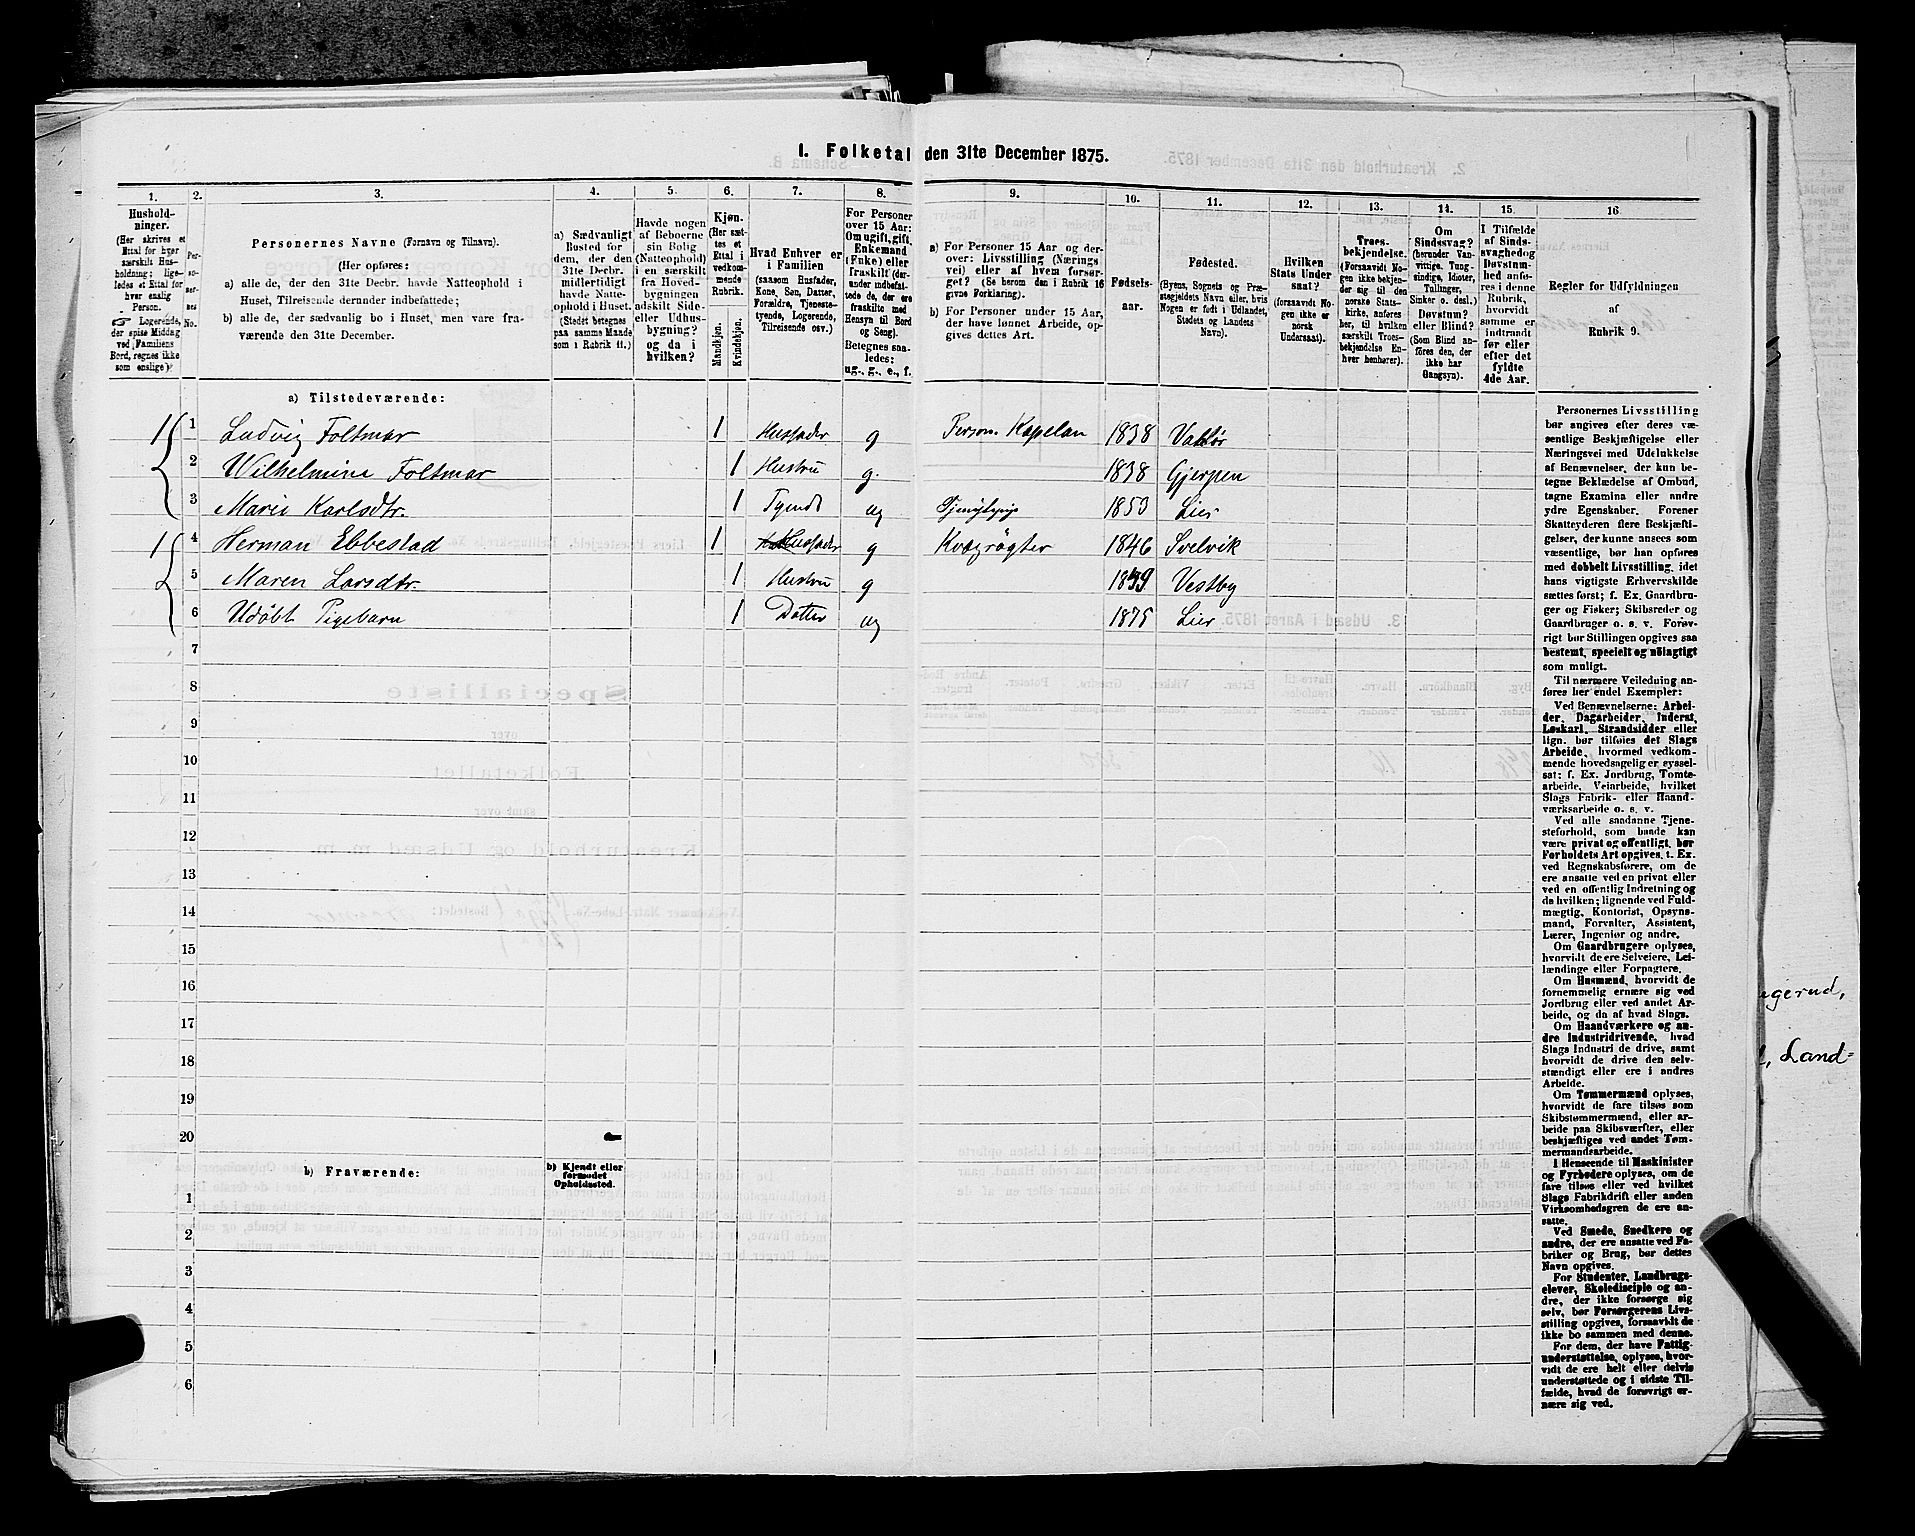 1. Folketal den 31te December 1875.
1. 2. 3. 4. 5. 6. 7. 8. 9. 10. 11. 12. 13. 14. 15. 16.
Hushold-
ninger.
(Her skrives et
Ettal for hver
særskilt Hus-
holdning; lige-
ledes et Ettal for
hver enslig
Person.
☞ Logerende,
der spise Middag
ved Familiens
Bord, regnes ikke
som enslige)
Per-
so-
ner-
nes
No.
Personernes Navne (Fornavn og Tilnavn).
(Her opføres:
a) alle de, der den 31te Decbr. havde Natteophold i
Huset, Tilreisende derunder indbefattede;
b) alle de, der sædvanlig bo i Huset, men vare fra-
værende den 31te December.
a) Sædvanligt
Bosted for
dem, der den
31te Decbr.
midlertidigt
havde Natte-
ophold i Huset.
(Stedet betegnes
paa samme Maade
som i Rubrik 11.)
Havde nogen
af Beboerne
sin Bolig
(Natteophold)
i en særskilt
fra Hoved-
bygningen
adskilt Side-
eller Udhus-
bygning?
og da i
hvilken?
Kjøn.
(Her sæt-
tes et
Ettal i
vedkom-
mende
Rubrik.
Mandkjøn.
Kvindekjøn.
Hvad Enhver er
i Familien
(saasom Husfader,
Kone, Søn, Datter,
Forældre, Tjeneste-
tyende, Logerende,
Tilreisende osv.)
For Personer
over 15 Aar:
Om ugift, gift,
Enkemand
(Enke) eller
fraskilt (der-
under indbefat-
tede de, der ere
fraskilte med
Hensyn til Bord
og Seng).
Betegnes saa-
ledes:
ug., g., e., f.
a) For Personer 15 Aar og der-
over: Livsstilling (Nærings
vei) eller af hvem forsør-
get? (Se herom den i Rubrik 16
givne Forklaring).
b) For Personer under 15 Aar,
der have lønnet Arbeide, op-
gives dettes Art.
Fødsels-
aar.
Fødested.
(Byens, Sognets og Præ-
stegjeldets Navn eller, hvis
Nogen er født i Udlandet,
Stedets og Landets
Navn).
Hvilken
Stats Under
saat?
(forsaavidt No-
gen ikke er
norsk
Undersaat).
Troes-
bekjendelse.
(Forsaavidt No-
gen ikke bekjen-
der sig til den
norske Stats-
kirke, anføres
her, til hvilken
særskilt Troes-
bekjendelse En-
hver henhører).
Om
Sindssvag?
(herunder Van-
vittige, Tung-
sindige, Idioter,
Tullinger,
Sinker o. desl.)
Døvstum?
eller Blind?
(Som Blind an-
føres den, der
ikke har
Gangsyn).
I Tilfælde
af Sinds-
svaghed og
Døvstum-
hed anfø-
res i denne
Rubrik,
hvorvidt
samme er
indtraadt
før eller
efter det
fyldte
4de Aar.
Regler for Udfyldningen
af
Rubrik 9.
a) Tilstedeværende:
1 1 Ludvig Foltmar 1 Husfader g Person. Kapelan 1838 Valør
2 Wilhelmine Foltmar 1 Hustru g. 1838 Gjerpen
3 Marie Karlsdtr. 1 Tyende ug Tjenestepige 1853 Lier
1 4 Herman Ebbestad 1 Husfader g Kvægrøgter 1846 Svelvik
5 Maren Larsdtr. 1 Hustru g 1839 Vestby
6 Udöbt Pigebarn 1 Datter ug 1875 Lier
7
8
9
10
11
12
13
14
15
16
17
18
19
20
b) Fraværende:
b) Kjendt eller
formodet
Opholdssted.
1
2
3
4
5
6
Personernes Livsstilling
bør angives efter deres væ-
sentlige Beskjæftigelse eller
Næringsvei med Udelukkelse
af Benævnelser, der kun be-
tegne Beklædelse af Ombud,
tagne Examina eller andre
ydre Egenskaber. Forener
Skatteyderen flere Beskjæfti-
gelser, der kunne ansees som
væsentlige, bør han opføres
med dobbelt Livsstilling, idet
hans vigtigste Erhvervskilde
sættes først; f. Ex. Gaardbru-
ger og Fisker; Skibsreder og
Gaardbruger o. s. v. Forøv-
rigt bør Stillingen opgives saa
bestemt, specielt og nöiagtigt
som muligt.
Til nærmere Veiledning an-
føres her endel Exempler:
Ved Benævnelserne: Arbei-
der, Dagarbeider, Inderst,
Løskarl, Strandsidder eller
lign. bør tilføies det Slags
Arbeide, hvormed vedkom-
mende hovedsagelig er syssel-
sat; f. Ex. Jordbrug, Tomte-
arbeide, Veiarbeide, hvilket
Slags Fabrik- eller Haand-
værksarbeide o. s. v.
Ved alle saadanne Tjene-
steforhold, som baade kan
være privat og offentligt, bør
Forholdets Art opgives, t. Ex.
ved Regnskabsførere, om de
ere ansatte ved en privat eller
ved en offentlig Indretning og
da hvilken; lignende ved Fuld-
mægtig, Kontorist, Opsyns-
mand, Forvalter, Assistent,
Lærer, Ingeniør og andre.
Om Gaardbrugere oplyses,
hvorvidt de ere Selveiere, Lei-
lændinge eller Forpagtere.
Om Husmænd, hvorvidt de
fornemmelig ernære sig ved
Jordbrug eller ved andet Ar-
beide, og da af hvad Slags.
Om Haandværkere og an-
dre Industridrivende, hvad
Slags Industri de drive, samt
hvorvidt de drive den selv-
stændigt eller ere i andres
Arbeide.
Om Tømmermænd oplyses,
hvorvidt de fare tilsøs som
Skibstømmermænd, eller ar-
beide paa Skibsværfter, eller
beskjæftiges ved andet Tøm-
mermandsarbeide.
I Henseende til Maskinister
og Fyrbødere oplyses, om de
fare tilsøs eller ved hvilket
Slags Fabrikdrift eller anden
Virksomhedsgren de ere an-
satte.
Ved Smede, Snedkere og
andre, der ere ansatte ved Fa-
briker og Brug, bør dettes
Navn opgives.
For Studenter, Landbrugs-
elever, Skoledisciple og an-
dre, der ikke forsørge sig
selv, bør Forsørgerens Livs-
stilling opgives, forsaavidt de
ikke bo sammen med denne.
For dem, der have Fattig-
understøttelse, oplyses, hvor-
vidt de ere helt eller delvis
understøttede og i sidste Til-
fælde, hvad de forøvrigt er-
nære sig ved.
gerud,
Land=